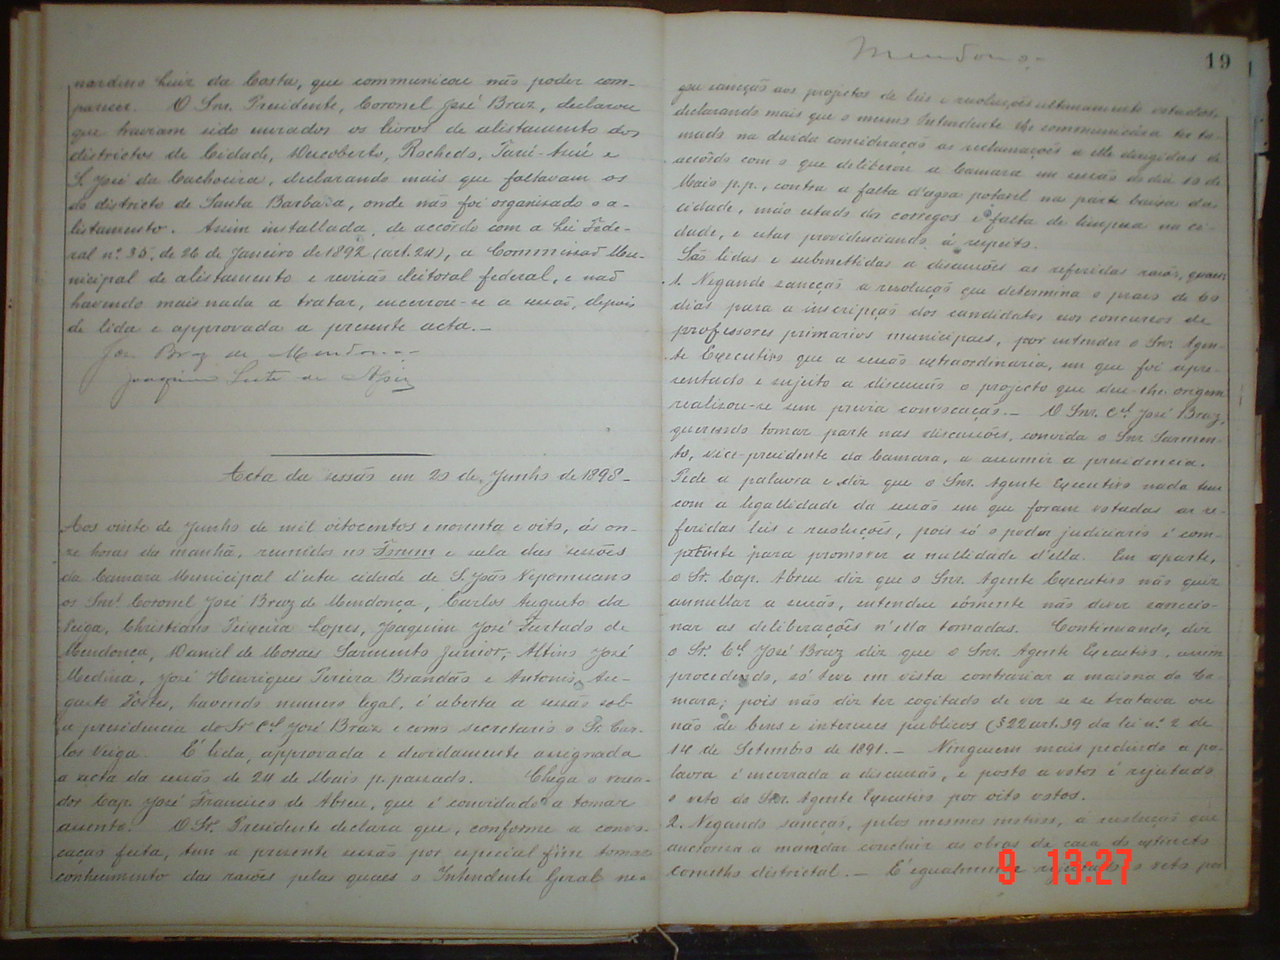 nardino Luiz da Costa, que communicou não poder com-
parecer. O Snr. Presidente, Coronel José Braz, declarou
que haviam sido enviados os livros de alistamento dos
districtos de Cidade, Descoberto, Rochedo, Taru-Assú e
S. José da Cachoeira, declarando mais que faltavam os
do districto de Santa Barbara, onde não foi organisado o a-
listamento. Assim installada, de accordo com a Lei Fede-
ral n.º 35, de 26 de Janeiro de 1892 (art. 24), a Commissão Mu-
nicipal de alistamento e revisão eleitoral federal, e não
havendo mais nada a tratar, encerrou-se a sessão, depois
de lida e approvada a presente acta.—
José Braz de Mendonça
Joaquim
Acta da sessão em 20 de Junho de 1898-
Aos vinte de Junho de mil oitocentos e noventa e oito, ás on-
ze horas da manhã, reunidos no Forum e sala das sessões
da Camara Municipal d'esta cidade de S. João Nepomuceno
os Snrs. Coronel José Braz de Mendonça, Carlos Augusto da
Veiga, Christiano Teixeira Lopes, Joaquim José Furtado de
Mendonça, Daniel de Moraes Sarmento Junior, Altino José
Medina, José Henriques Pereira Brandão e Antonio Au-
gusto Fortes, havendo numero legal, é aberta a sessão sob
a presidencia do Sr. Cel. José Braz e como secretario o Sr. Car-
los Veiga. É lida, approvada e devidamente assignada
a acta da sessão de 24 de Maio p. passado. Chega o verea-
dor Cap. José Francisco de Abreu, que é convidado a tomar
assento. O Sr. Presidente declara que, conforme a convo-
cação feita, tem a presente sessão por especial fim tomar
conhecimento das rasões pelas quaes o Intendente Geral ne-
Mendonça
19
gou sancção aos projectos de leis e resoluções ultimamente votados,
declarando mais que o mesmo Intendente lhe communicára ter to-
mado na devida consideração as reclamações a elle dirigidas de
accôrdo com o que deliberou a Camara em sessão do dia 10 de
Maio p.p., contra a falta d'agoa potavel na parte baixa da
cidade, máo estado dos corregos e falta de limpesa na ci-
dade, e estar providenciando á respeito.
São lidas e submettidas a discussões as referidas rasões, quaes:
1. Negando sancção a resolução que determina o praso de 60
dias para a inscripção dos candidatos aos concursos de
professores primarios municipaes, por entender o Snr. Agen-
te Executivo que a sessão extraordinaria, em que foi apre-
sentado e sujeito a discussão o projecto que deu-lhe origem
realisou-se sem previa convocação.— O Snr. Cel. José Braz,
querendo tomar parte nas discussões, convida o Snr. Sarmen-
to, vice-presidente da Camara, a assumir a presidencia.
Pede a palavra e diz que o Snr. Agente Executivo nada tem
com a legallidade da sessão em que foram votadas as re-
feridas leis e resoluções, pois só o poder judiciario é com-
petente para promover a nullidade d'ella. Em aparte,
o Sr. Cap. Abreu diz que o Snr. Agente Executivo não quiz
annullar a sessão, entendeu sómente não dever sanccio-
nar as deliberações n'ella tomadas. Continuando, diz
o Sr. Cel. José Braz diz que o Snr. Agente Executivo, assim
procedendo, só teve em vista contrariar a maioria da Ca-
mara; pois não diz ter cogitado de ver se se tratava ou
não de bens e interesses publicos (§ 22 art. 39 da lei n.º 2 de
14 de Setembro de 1891.— Ninguem mais pedindo a pa-
lavra é encerrada a discussão, e posto a votos é rejeitado
o veto do Snr. Agente Executivo por oito votos.
2. Negando sancção, pelos mesmos motivos, á resolução que
auctorisa a mandar concluir as obras da casa do extincto
conselho districtal.— É igualmente rejeitado o veto por
9 13:27